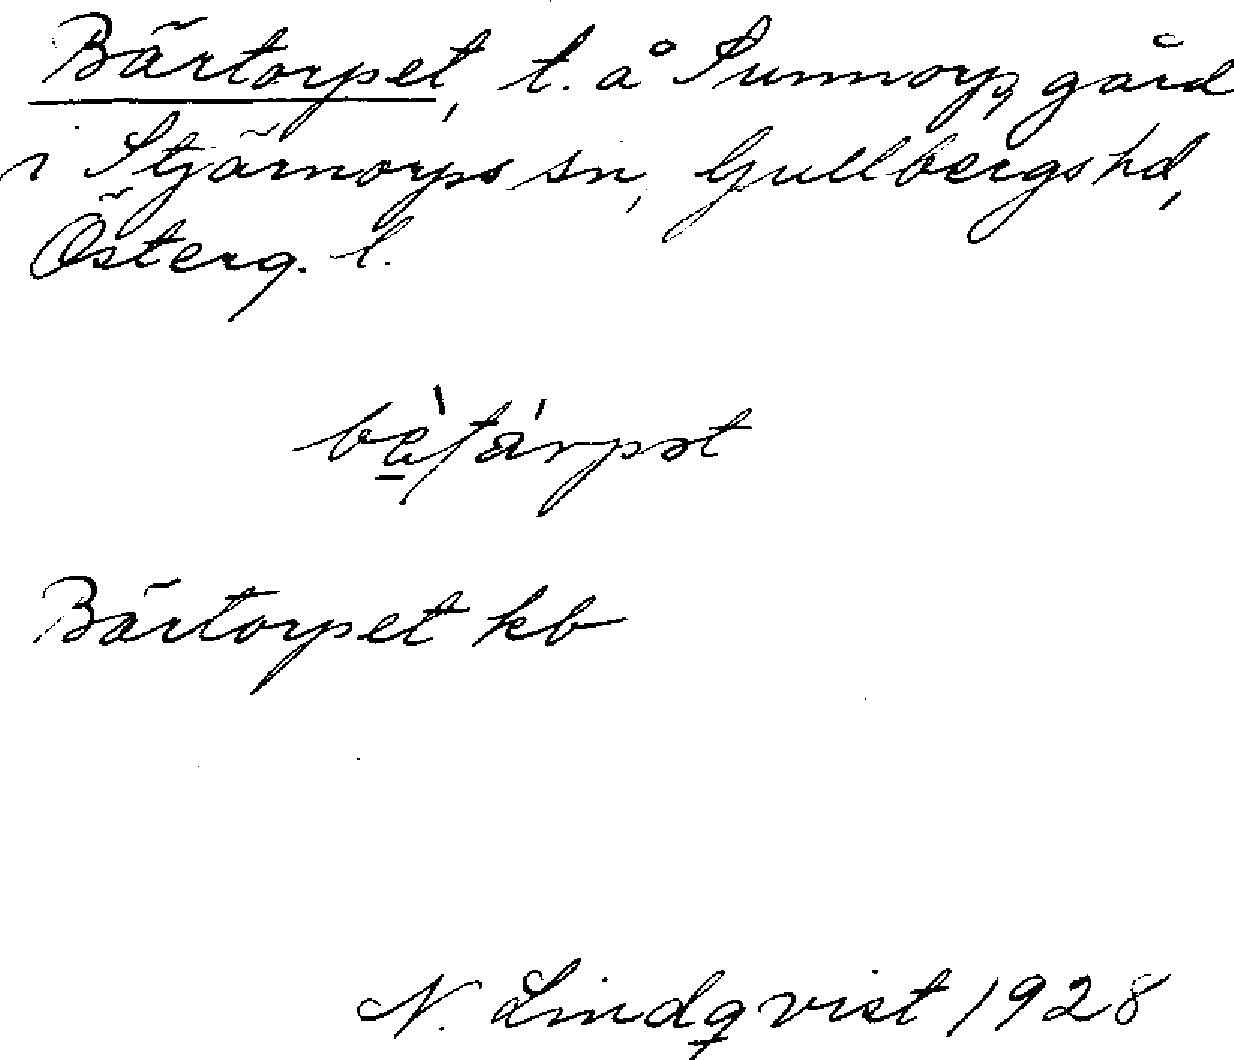 Bärtorpet, t. å Sunnorp, gård
i Stjärnorps sn, Gullbergs hd,
Österg. l.
Bärtorpet kb
N. Lindqvist 1928